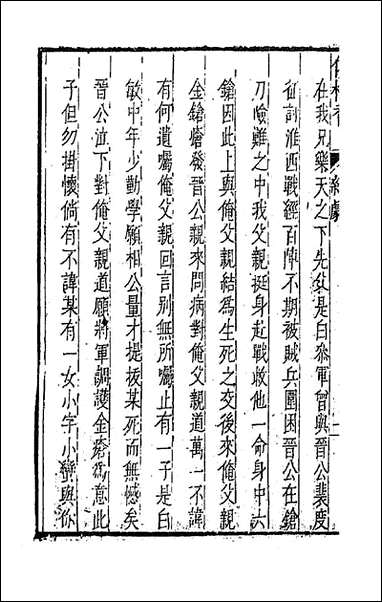 在我兄樂天之下先父是白參軍曾與晉公裴度
征討淮西戰經百陣不期被賊兵圍困晉公在鎗
刀險難之中我父親挺身赴戰救他一命身中六
鎗因此上與俺父親結爲生死之交後來俺父親
金鎗瘡發晉公親來問病對俺父親道萬一不諱
有何遺囑俺父親回言別無所囑止有一子是白
敏中年少勤學願相公量才提拔某死而無憾矣
晉公泣下對俺父親道願將軍調護金瘡爲意此
子但勿掛懷倘有不諱某有一女小字小蠻與你